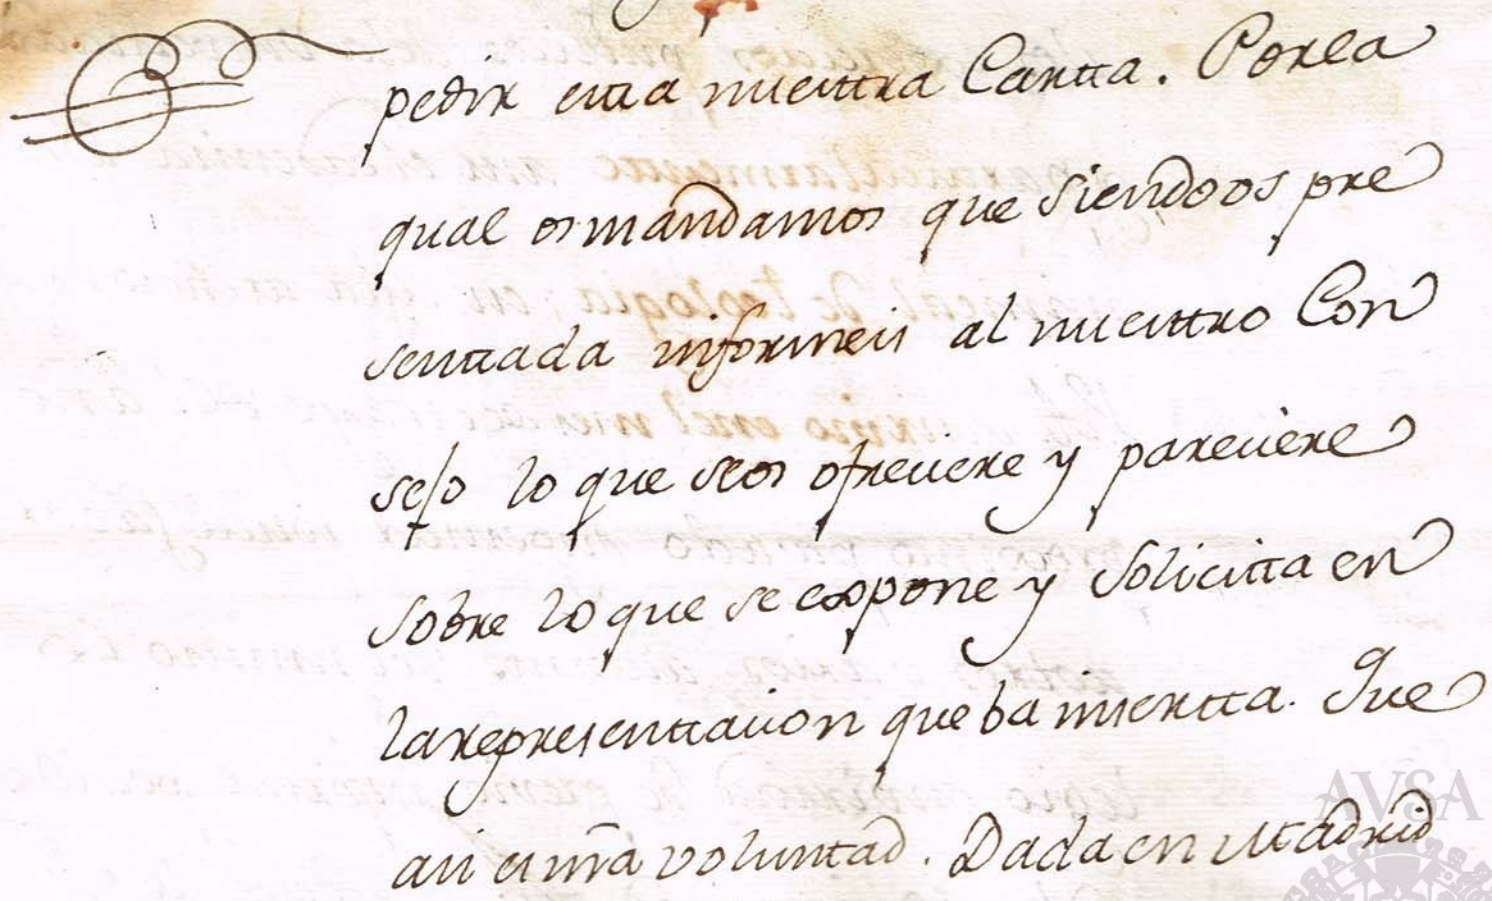 pedir esta nuestra Cartta. Por la
qual os mandamos que siendoos pre
senttada informeis al nuesttro Con
sejo lo que se os ofreciere y pareciere
sobre lo que se expone y solicitta en
la representtacion que ba insertta. Que
asi es nra voluntad. Dada en Madrid
AVSA